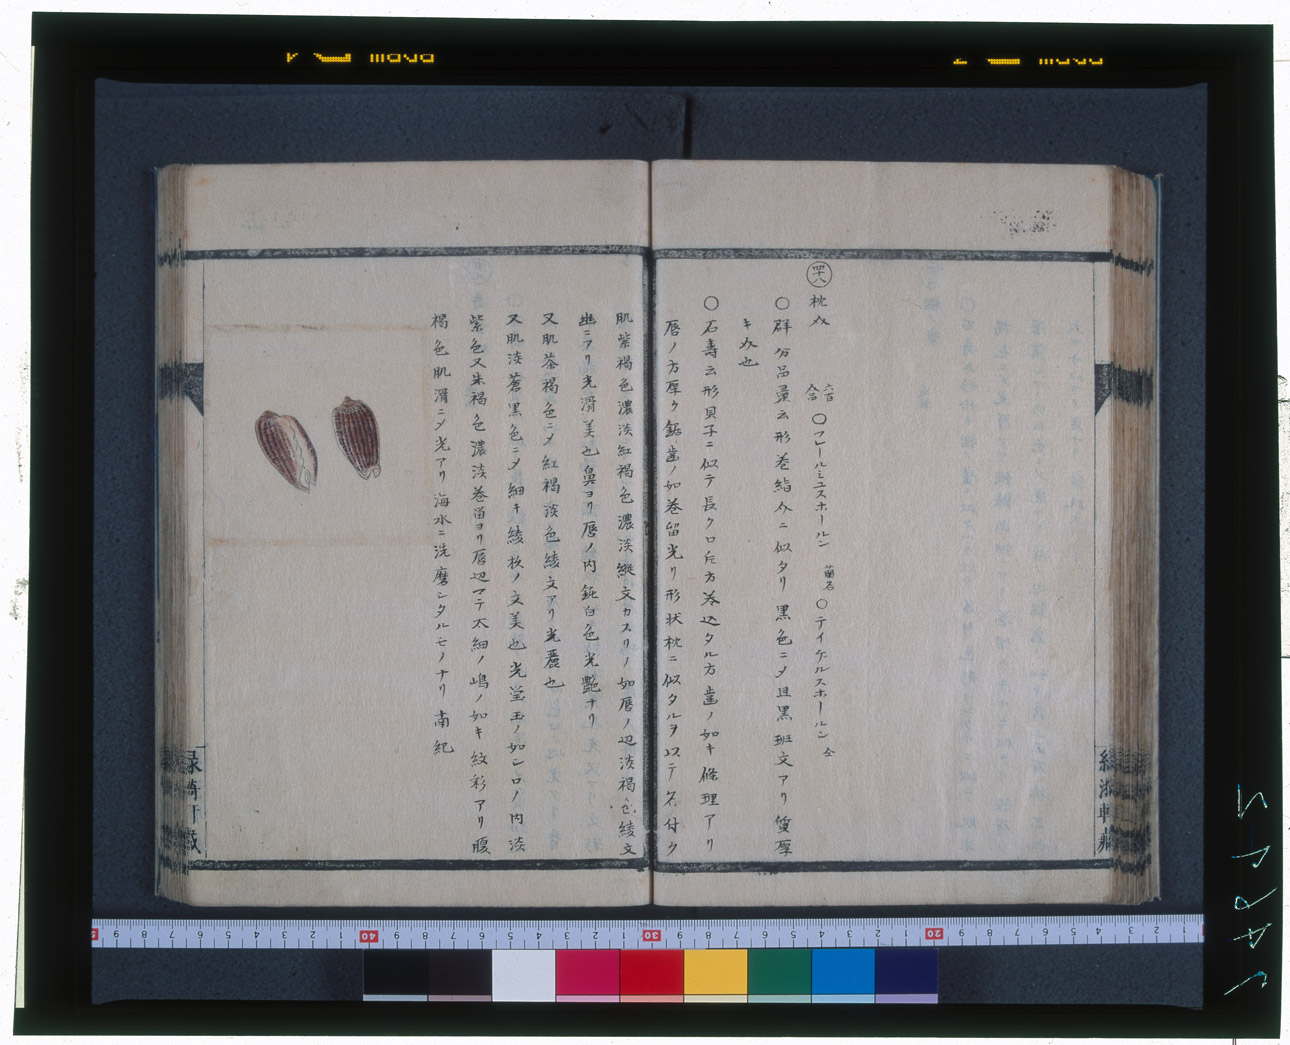 四十八
枕介
六百
八十 〇フレールミユスホールン 蘭名 〇テイケルスホールン 仝
〇群分品彙云形巻鮨介ニ似タリ黒色ニメ且黒斑文アリ質厚
キ介也
〇石壽云形貝子ニ似テ長ク口ノ方巻込タル方歯ノ如キ條理アリ
唇ノ方厚ク鋸歯ノ如巻留光リ形状枕ニ似タルヲ以テ名付ク
肌紫褐色濃淡紅褐色濃淡縦文カスリノ如唇ノ辺淡褐色綾文
幽ニアリ光滑美也鼻ヨリ唇ノ内鈍白色光艶ナリ
又肌茶褐色ニメ紅褐淡色綾文アリ光麗也
又肌淡蒼黒色ニメ細キ綾杉ノ文美也光瑩玉ノ如シロノ内淡
紫色又朱褐色濃淡巻留ヨリ唇辺マテ太細ノ嶋ノ如キ紋彩アリ腹
褐色肌滑ニメ光アリ海水ニ洗磨シタルモノナリ南紀
緑漪軒蔵